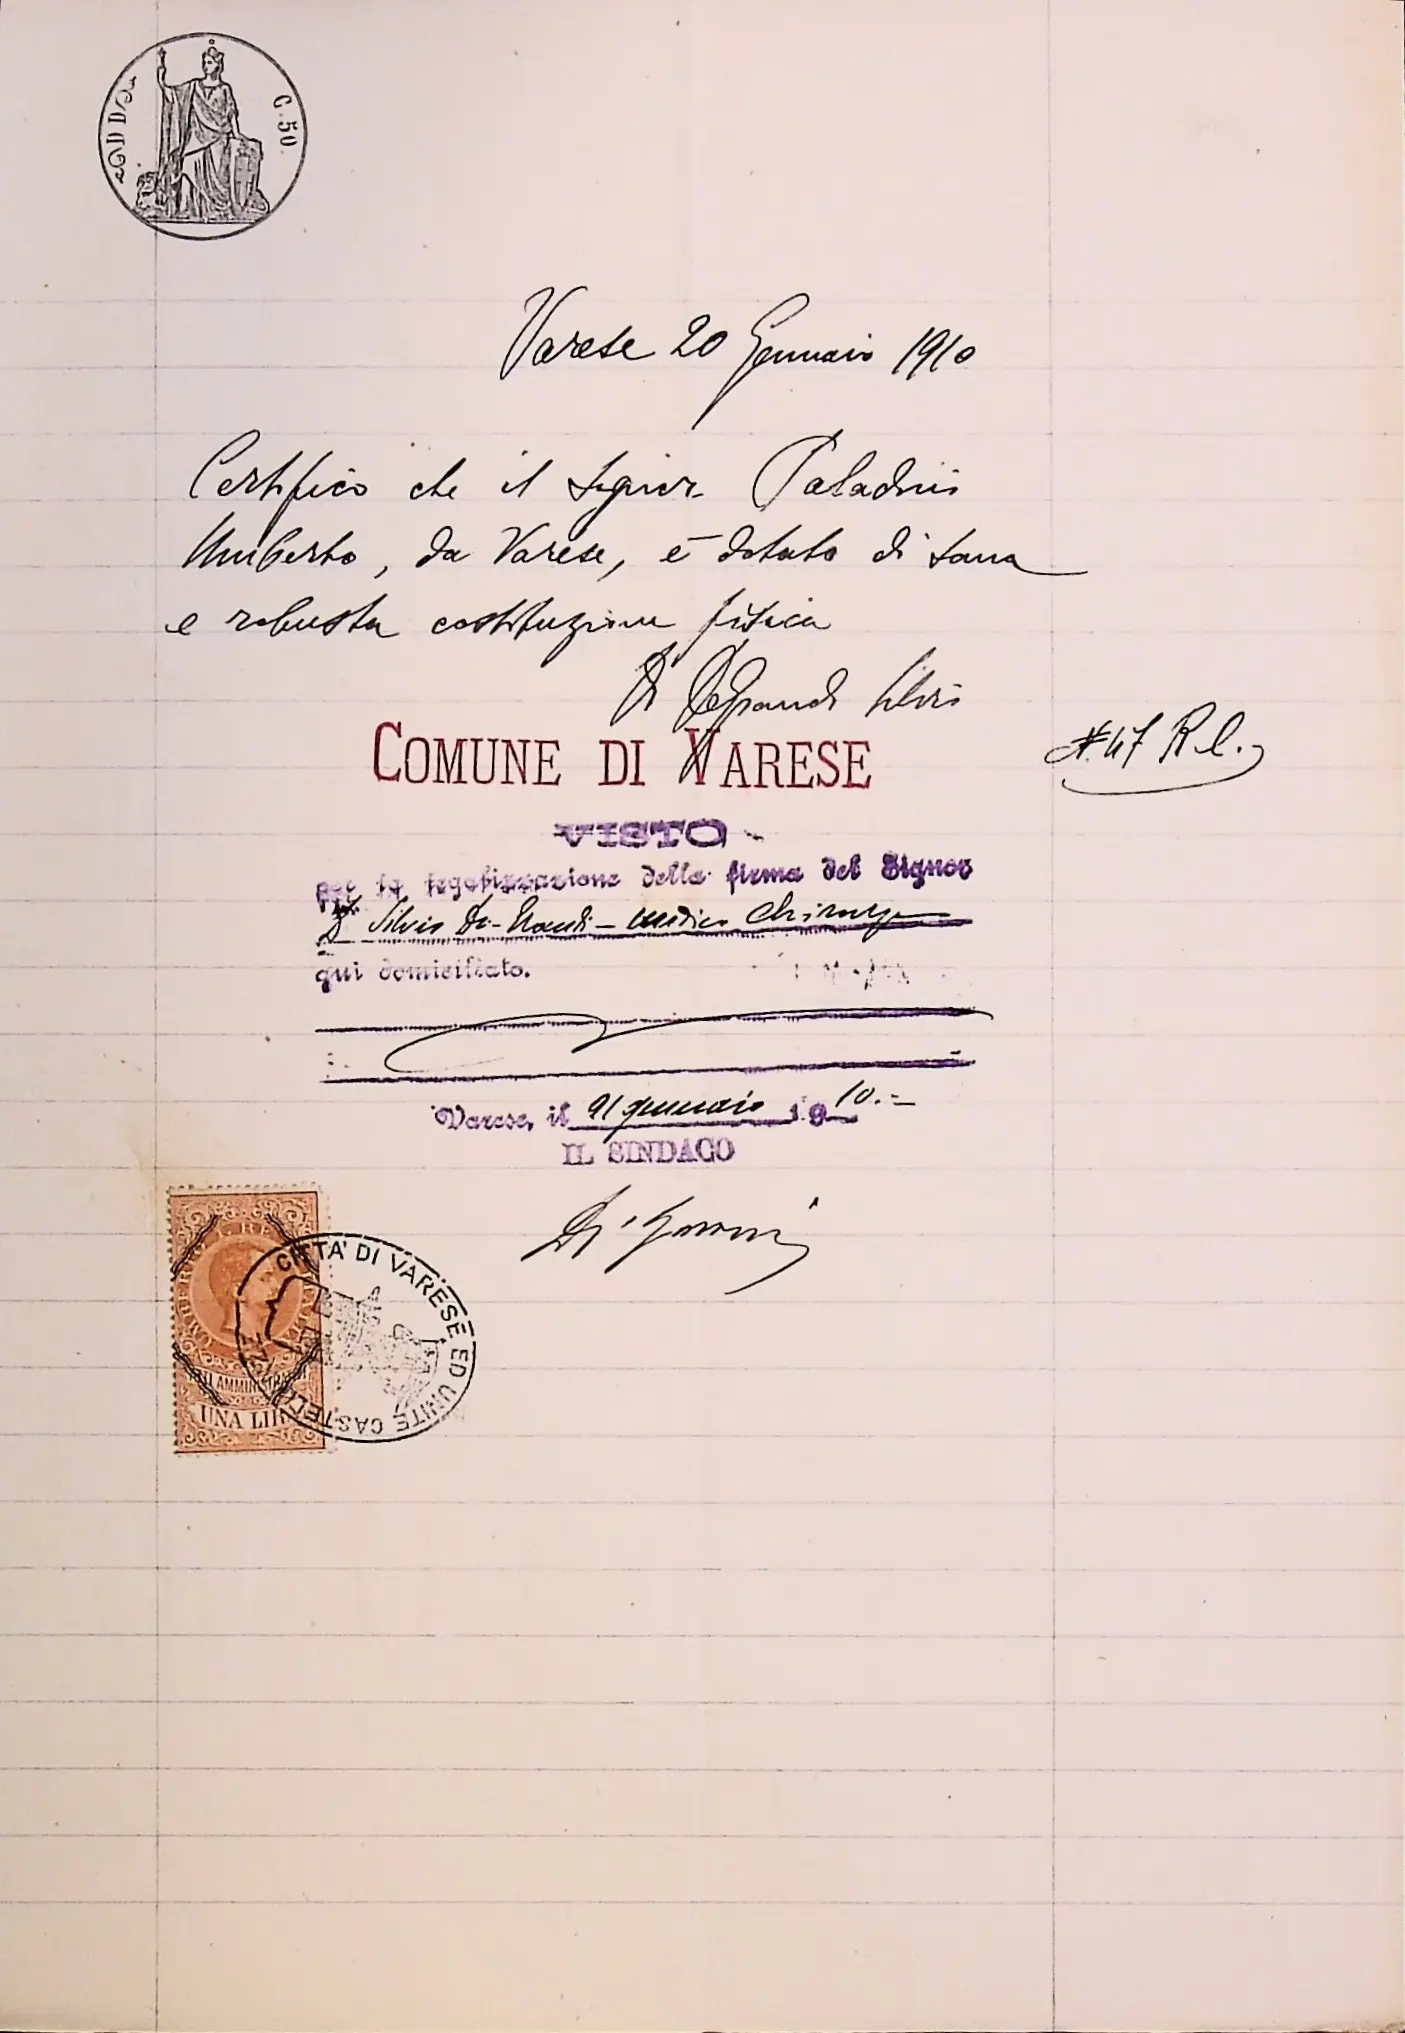 C. 50
Varese 20 Gennaio 1910
Certifico che il Signor Paladini
Umberto, da Varese, è dotato di sana
e robusta costituzione fisica
Dr DeGrandi Silvio
COMUNE DI VARESE
N. 47 R.l.
VISTO
per la legalizzazione della firma del Signor
Dr. Silvio De-Grandi - medico Chirurgo
qui domiciliato.
Varese, il 21 gennaio 1910.=
IL SINDACO
UMBERTO I. RE D'ITALIA
ATTI AMMINISTRATIVI
UNA LIRA
CITTA' DI VARESE ED UNITE CASTELLANZE